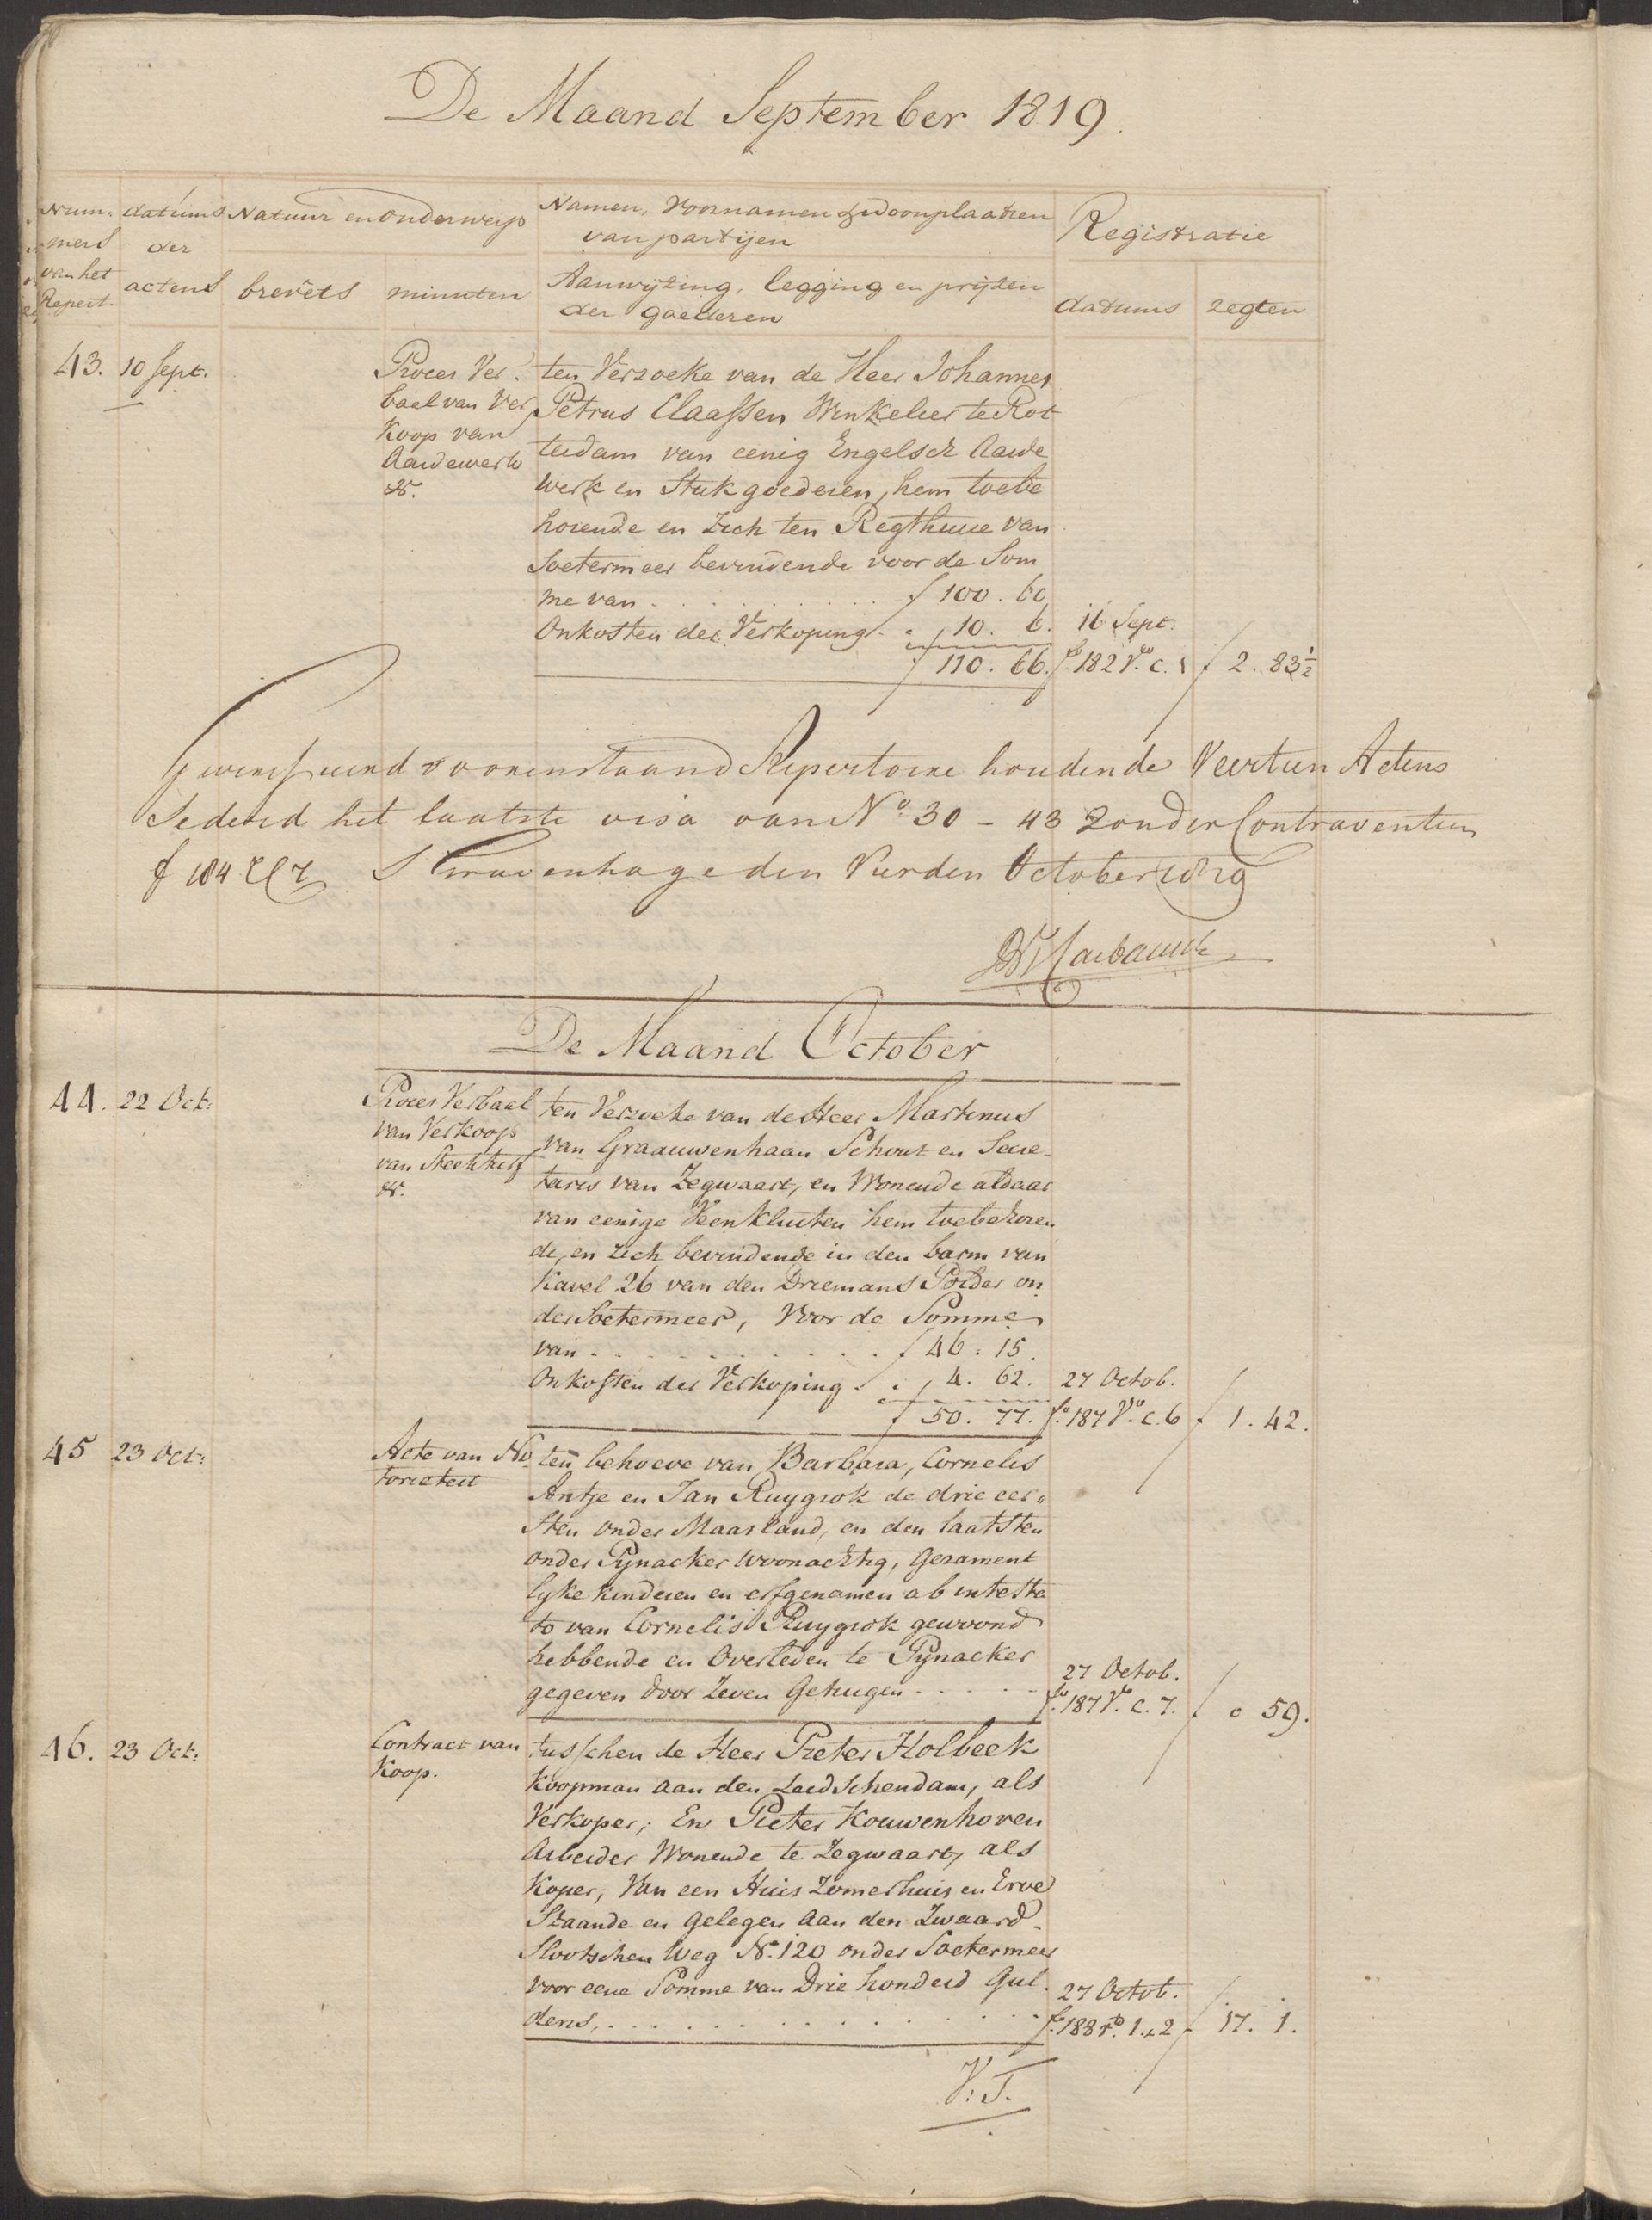 De Maand September 1819.
Num- datums Natuur en Onderwerp Namen, Voornamen & Woonplaatsen Registratie
mers der van partijen
van het actens brevets minuten Aanwijzing, legging en prijzen datums regten
Repert. der goederen
43. 10 Sept. Proces Ver- ten Verzoeke van de Heer Johannes
baal van Ver Petrus Claassen Winkelier te Rot
koop van terdam van eenig Engelsch Aarde
Aardewerk werk en Stukgoederen, hem toebe
&c. horende en Zich ten Regthuize van
Soetermeer bevindende voor de Som
me van . . . . . f 100. 60
Onkosten der Verkoping - " 10. 6. 16 Sept.
f 110. 66. fo. 182 Vo. C. 1 f 2. 83½
voorenstaand Repertoire houdende Veertien Actens
Sedert het laatste visa van No. 30 - 43 Zonder Contraventien
f 184 S Gravenhage den Vierden October 1819
De Maand October
44. 22 Oct: Proces Verbaal ten Verzoeke van de Heer Martinus
van Verkoop van Graauwenhaan Schout en Secre-
van taris van Zegwaart, en Wonende aldaar
&c. van eenige Veenkluiten hem toebehoren
de, en Zich bevindende in den barm van
Kavel 26 van den Driemans Polder on
der Soetermeer, Voor de Somme
van . . . . . f 46. 15.
Onkosten der Verkoping . " 4. 62. 27 Octob.
f 50. 77. fo. 187 Vo. C. 6 f 1. 42.
45 23 Oct: Acte van No- ten behoeve van Barbara, Cornelis
torieteit Antje en Jan Ruygrok de drie eer-
sten onder Maasland, en den laatsten
onder Pijnacker woonachtig, Gezament
lyke kinderen en erfgenamen ab intesta
to van Cornelis Ruygrok gewoond
hebbende en Overleden te Pijnacker 27 Octob.
gegeven door Zeven Getuigen . . . . . fo. 187 Vo. C. 7. f " 59.
46. 23 Oct: Contract van tusschen de Heer Pieter Holbeek
Koop. Koopman aan den Leedschendam, als
Verkoper; En Pieter Kouwenhoven
Arbeider Wonende te Zegwaart, als
Koper, Van een Huis Zomerhuis en Erve
Staande en gelegen aan den Zwaard-
Slootschen Weg No. 120 onder Soetermeer
voor eene Somme van Drie honderd Gul- 27 Octob.
dens, . . . . . fo. 188 ro. 1. 2 f 17. 1.
V: T.